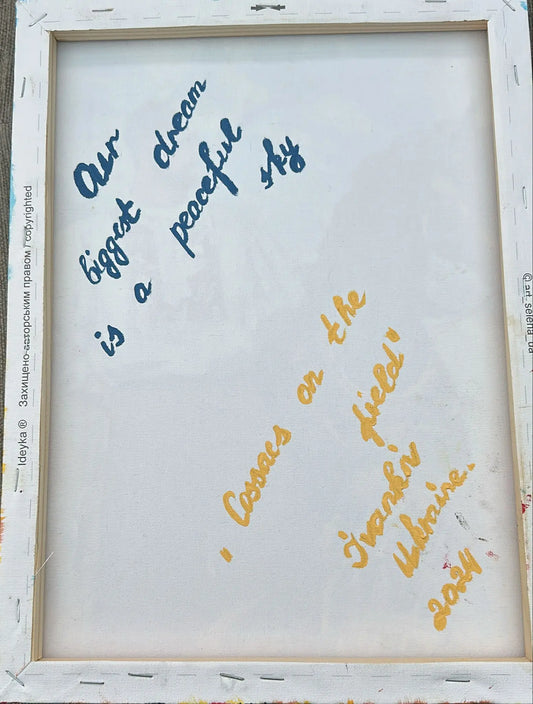 Our
biggest dream
is a peaceful sky
"Cossacs on the
field"
Ivankiv
Ukraine.
2024
Ideyka ® Захищено авторським правом / copyrighted
© art_selena_ua